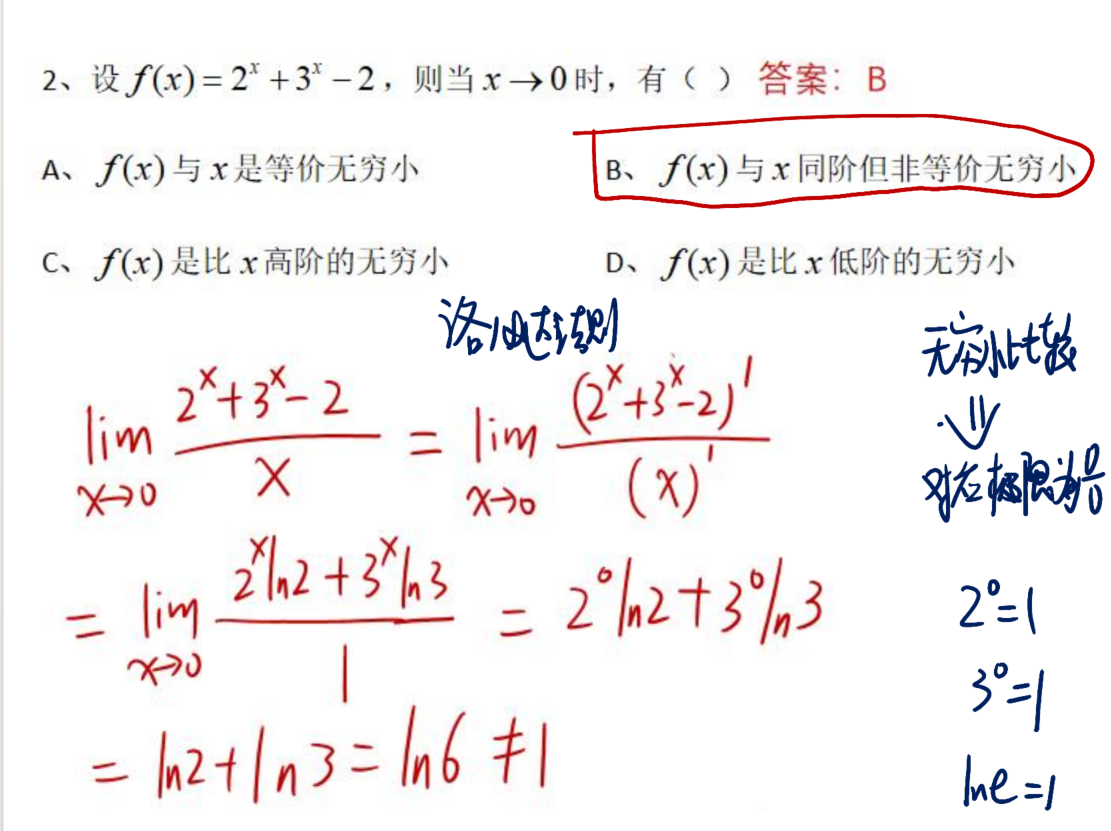 2、设 f(x) = 2^x + 3^x − 2，则当 x → 0 时，有（ ） 答案：B
A、 f(x) 与 x 是等价无穷小
B、 f(x) 与 x 同阶但非等价无穷小
C、 f(x) 是比 x 高阶的无穷小
D、 f(x) 是比 x 低阶的无穷小
洛必达法则
无穷小比较
⇓
lim x→0 (2^x+3^x−2)/x = lim x→0 (2^x+3^x−2)'/(x)'
极限为 0/0
= lim x→0 (2^x ln2+3^x ln3)/1 = 2^0 ln2+3^0 ln3
2^0=1
3^0=1
= ln2+ln3=ln6≠1
lne=1